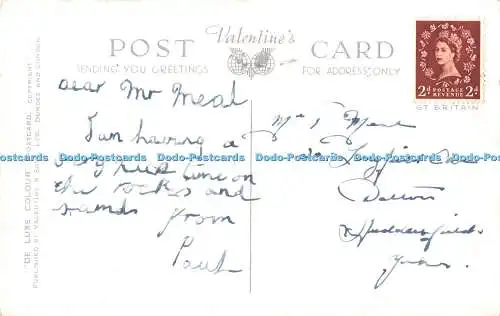 POST Valentine's CARD
SENDING YOU GREETINGS
FOR ADDRESS ONLY
2d POSTAGE REVENUE 2d
GT BRITAIN
"DE LUXE COLOUR" POSTCARD, COPYRIGHT
PUBLISHED BY VALENTINE & SONS, LTD., DUNDEE AND LONDON
Dear Mr Meal
I am having a
time on
the rocks and
sands from
Paul
Mr Meal
Dalton
Huddersfield
Yorks.
Dodo-Postcards Dodo-Postcards Dodo-Postcards Dodo-Postcards Dodo-Postcards Dodo-Postcards